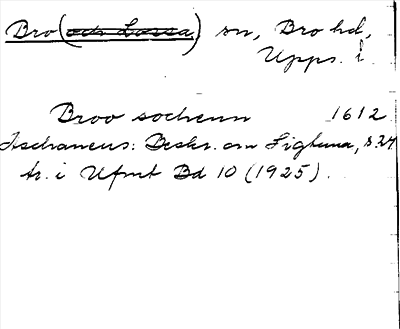 Bro (och Lossa) sn, Bro hd,
Upps. l.
Broo sochenn 1612
Aschaneus: Beskr. om Sigtuna, s. 34
tr. i Ufmt Bd 10 (1925).